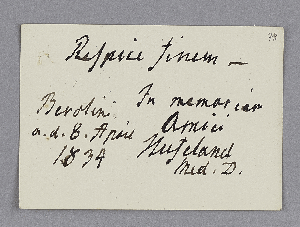 Respice finem —
In memoriam
Amici
Hufeland
Med. D.
Berolini
a. d. 8. April
1834